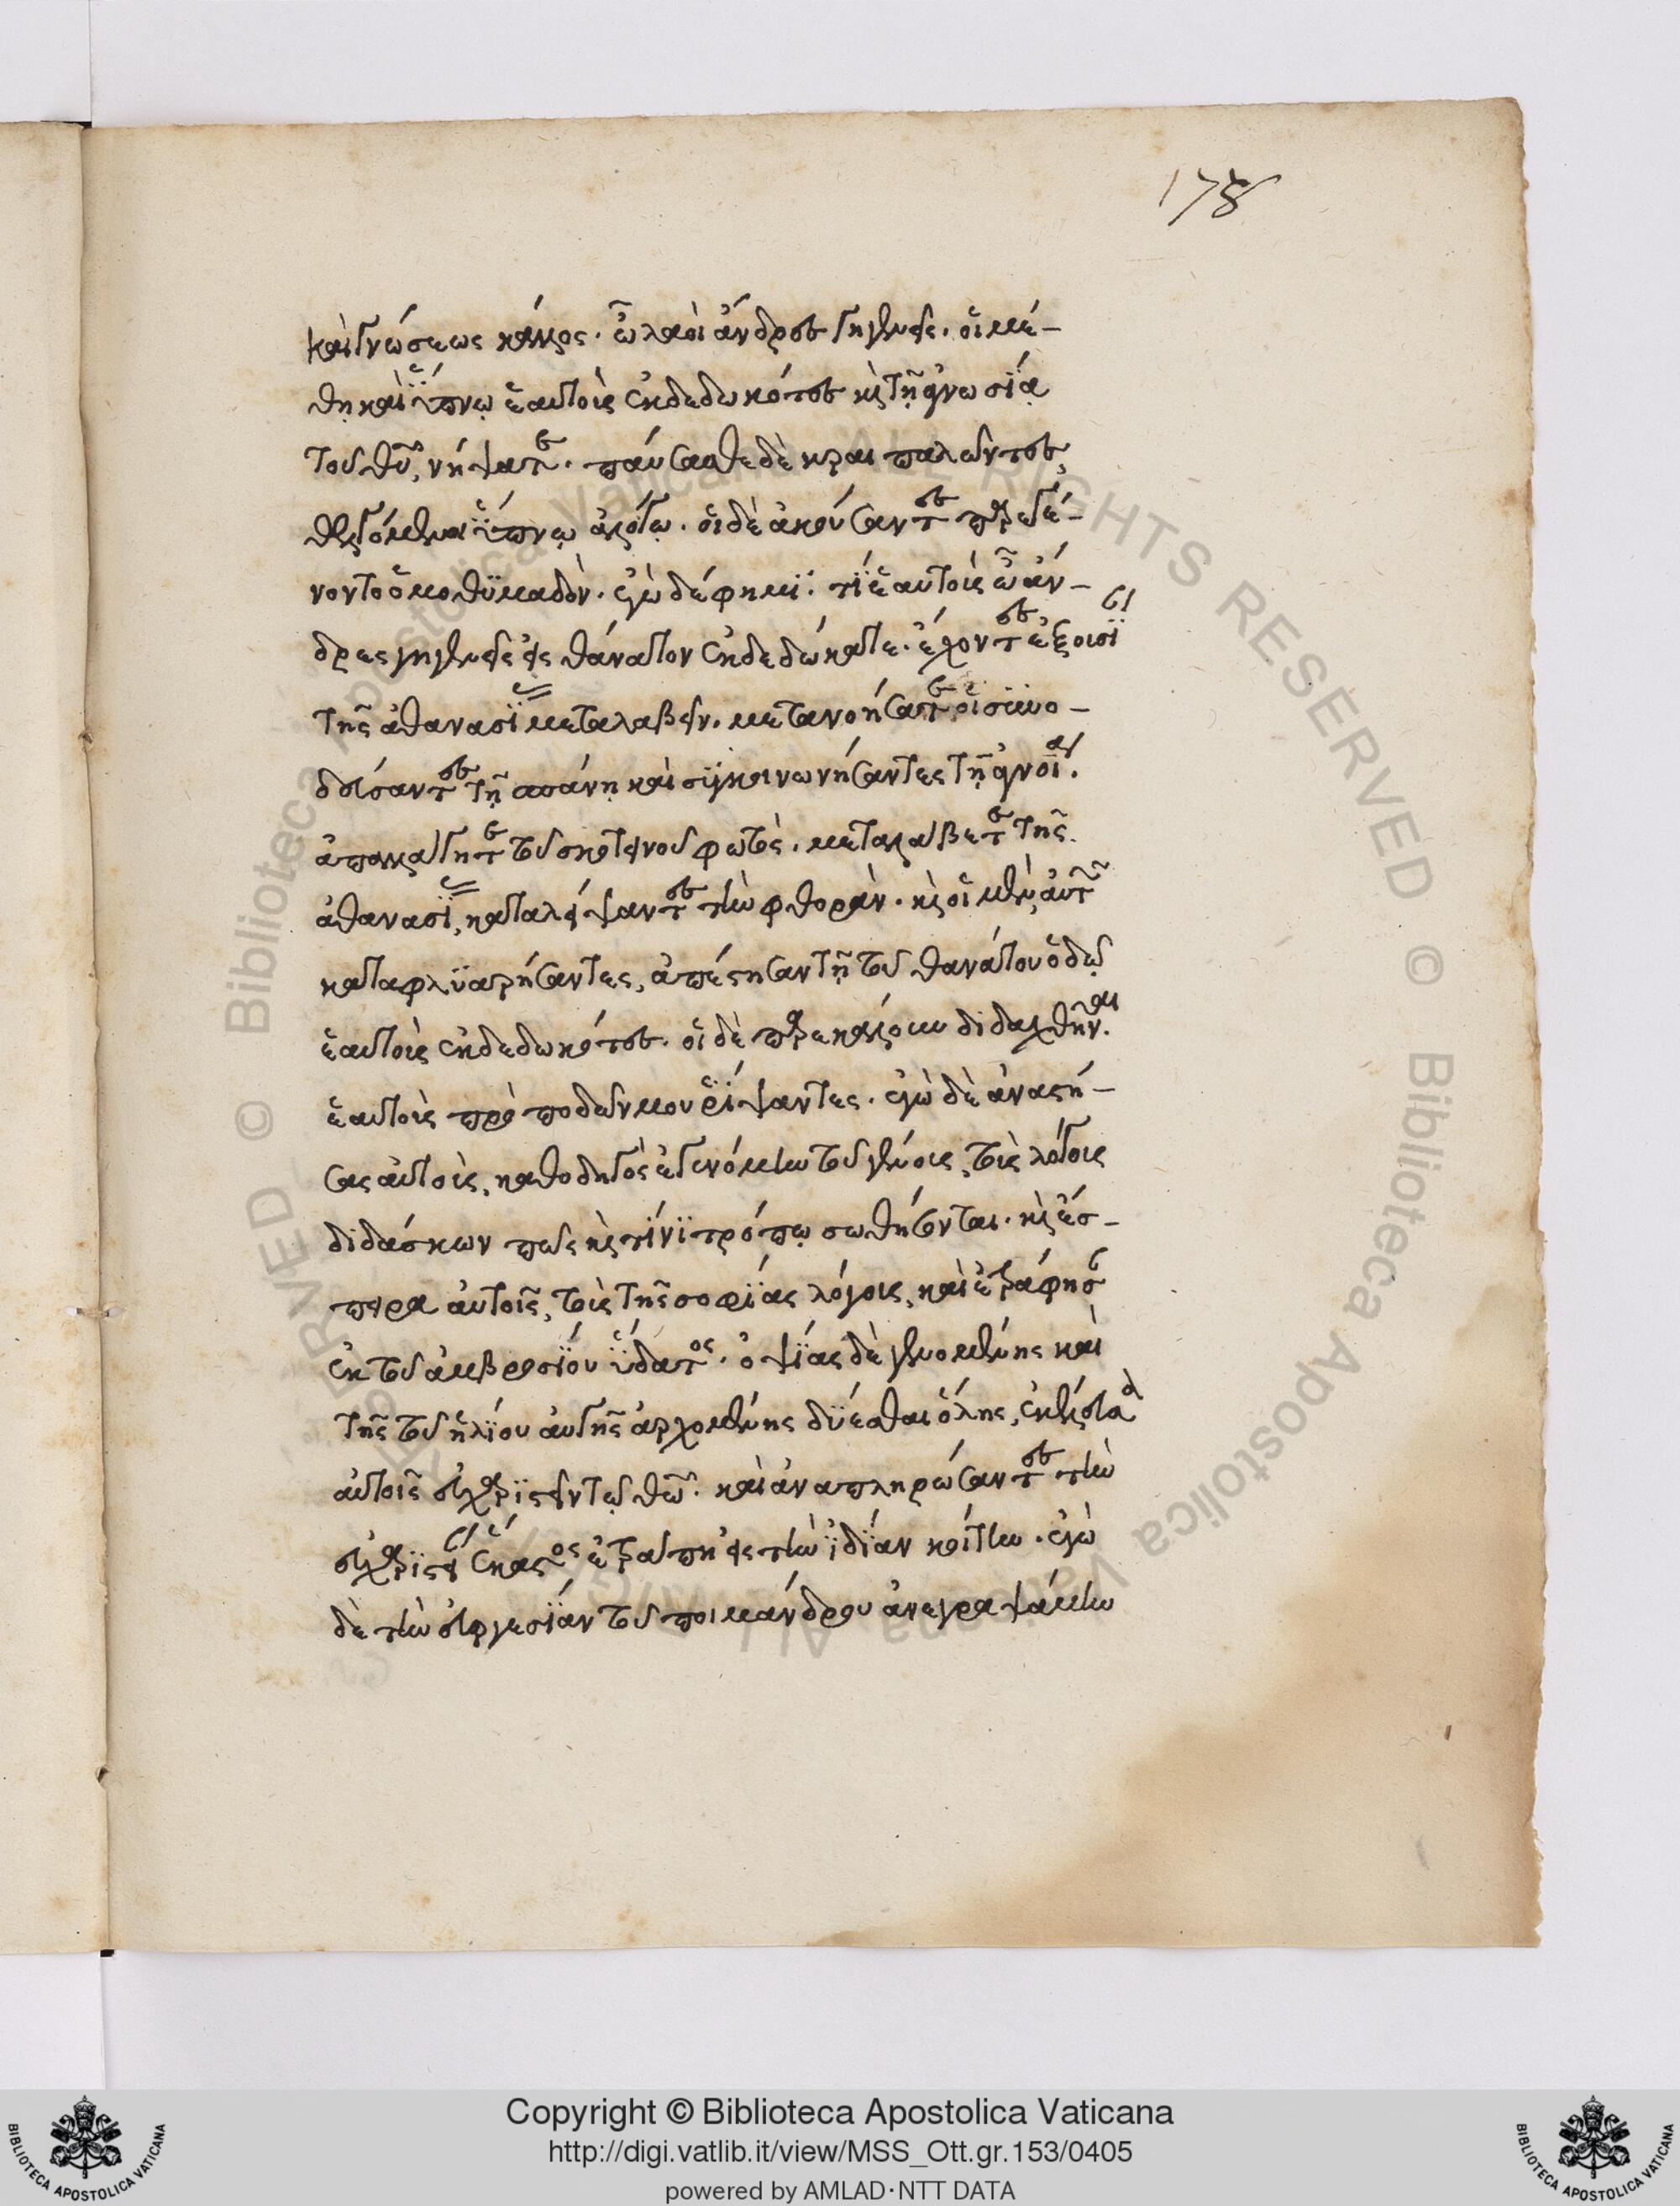 178
καὶ γνώσεως κάλλος· ὦ λαοὶ ἄνδρες γηγενεῖς· οἱ μέ-
θῃ καὶ ὕπνῳ ἑαυτοὺς ἐκδεδωκότες κ τῇ ἀγνωσίᾳ
τοῦ θῦ, νήψατε· παύσασθε δὲ κραιπαλῶντες,
θελγόμενοι ὕπνῳ ἀλόγῳ· οἱ δὲ ἀκούσαντες παρεγέ-
νοντο ὁμοθυμαδόν· ἐγὼ δέ φημι· τί ἑαυτοὺς ὦ ἄν-
δρες γηγενεῖς εἰς θάνατον ἐκδεδώκατε· ἔχοντες ἐξουσίαν
τῆς ἀθανασίας μεταλαβεῖν· μετανοήσατε οἱ συνο-
δεύσαντες τῇ πλάνῃ καὶ συγκοινωνήσαντες τῇ ἀγνοίᾳ·
ἀπαλλάγητε τοῦ σκοτεινοῦ φωτός· μεταλάβετε τῆς
ἀθανασίας, καταλείψαντες τὴν φθοράν· κ οἱ μὲν αὐτῶν
καταφλυαρήσαντες, ἀπέστησαν τῇ τοῦ θανάτου ὁδῷ
ἑαυτοὺς ἐκδεδωκότες· οἱ δὲ παρεκάλουν διδαχθῆναι·
ἑαυτοὺς πρὸ ποδῶν μου ῥίψαντες· ἐγὼ δὲ ἀναστή-
σας αὐτοὺς, καθοδηγὸς ἐγενόμην τοῦ γένους, τοὺς λόγους
διδάσκων πῶς κ τίνι τρόπῳ σωθήσονται· κ ἔσ-
πειρα αὐτοῖς, τοὺς τῆς σοφίας λόγους, καὶ ἐτράφησαν
ἐκ τοῦ ἀμβροσίου ὕδατος· ὀψίας δὲ γενομένης καὶ
τῆς τοῦ ἡλίου αὐγῆς ἀρχομένης δύεσθαι ὅλης, ἐκέλευσα
αὐτοῖς εὐχαριστεῖν τῷ θῶ· καὶ ἀναπληρώσαντες τὴν
εὐχαριστίαν ἕκαστος ἐτράπη εἰς τὴν ἰδίαν κοίτην· ἐγὼ
δὲ τὴν εὐεργεσίαν τοῦ ποιμάνδρου ἀνεγραψάμην
Copyright © Biblioteca Apostolica Vaticana
http://digi.vatlib.it/view/MSS_Ott.gr.153/0405
powered by AMLAD·NTT DATA